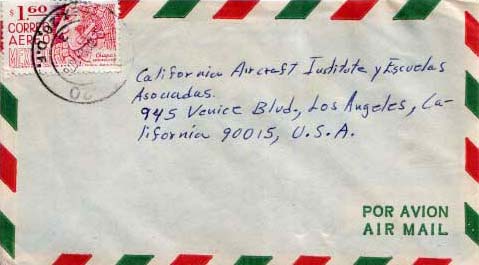 $1.60
CORREO
AEREO
MEXICO
Chiapas
20
California Aircraft Institute y Escuelas
Asociadas.
945 Venice Blvd., Los Angeles, Ca-
lifornia 90015, U.S.A.
POR AVION
AIR MAIL